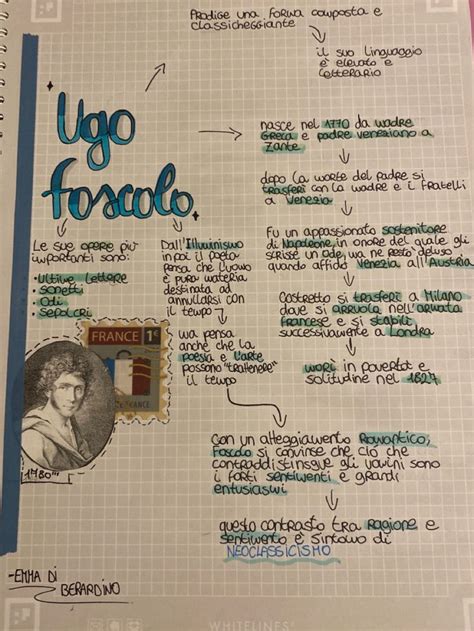 Prodige una forma composta e
classicheggiante
il suo linguaggio
è elevato e
letterario
Ugo
foscolo
nasce nel 1770 da madre
Greca e padre veneziano a
Zante
dopo la morte del padre si
trasferì con la madre e i fratelli
a Venezia
Fu un appassionato sostenitore
di Napoleone, in onore del quale gli
scrisse un ode, ma ne restò deluso
quando affidò Venezia all'Austria
Costretto si trasferì a Milano
dove si arruola nell'armata
francese e si stabilì
successivamente a Londra
morì in povertot e
solitudine nel 1827
Le sue opere più
importanti sono:
• Ultime lettere
• sonetti
• Odi
• Sepolcri
Dall'Illuminismo
in poi il poeta
pensa che l'uomo
è pura materia
destinata ad
annullarsi con
il tempo
ma pensa
anche che la
poesia e l'arte
possono "trattenere"
il tempo
FRANCE 1c
DE FRANCE
1780
Con un atteggiamento Romantico,
Foscolo si convinse che ciò che
contraddistinsgue gli uomini sono
i forti sentimenti e grandi
entusiasmi
questo contrasto tra Ragione e
sentimento è sintomo di
NEOCLASSICISMO
-EMMA DI
BERARDINO
WHITELINES®